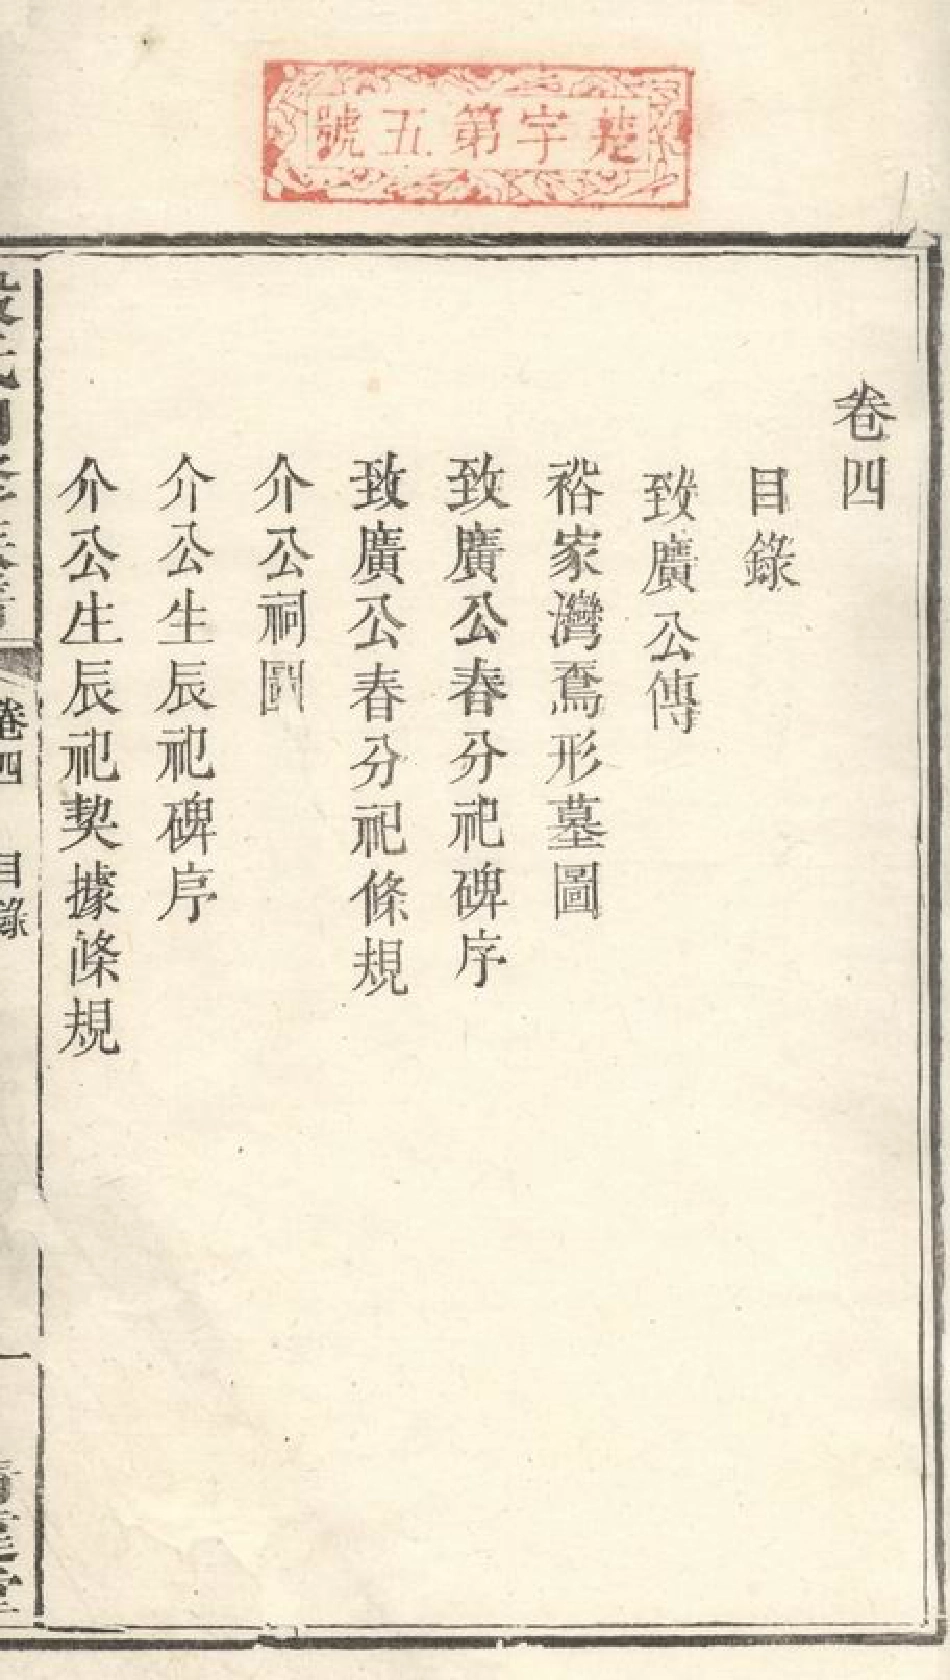 楚字第五號
卷四
目錄
致廣公傳
裕家灣鴦形墓圖
致廣公春分祀碑序
致廣公春分祀條規
介公祠圖
介公生辰祀碑序
介公生辰祀契據條規
卷四 目錄 一